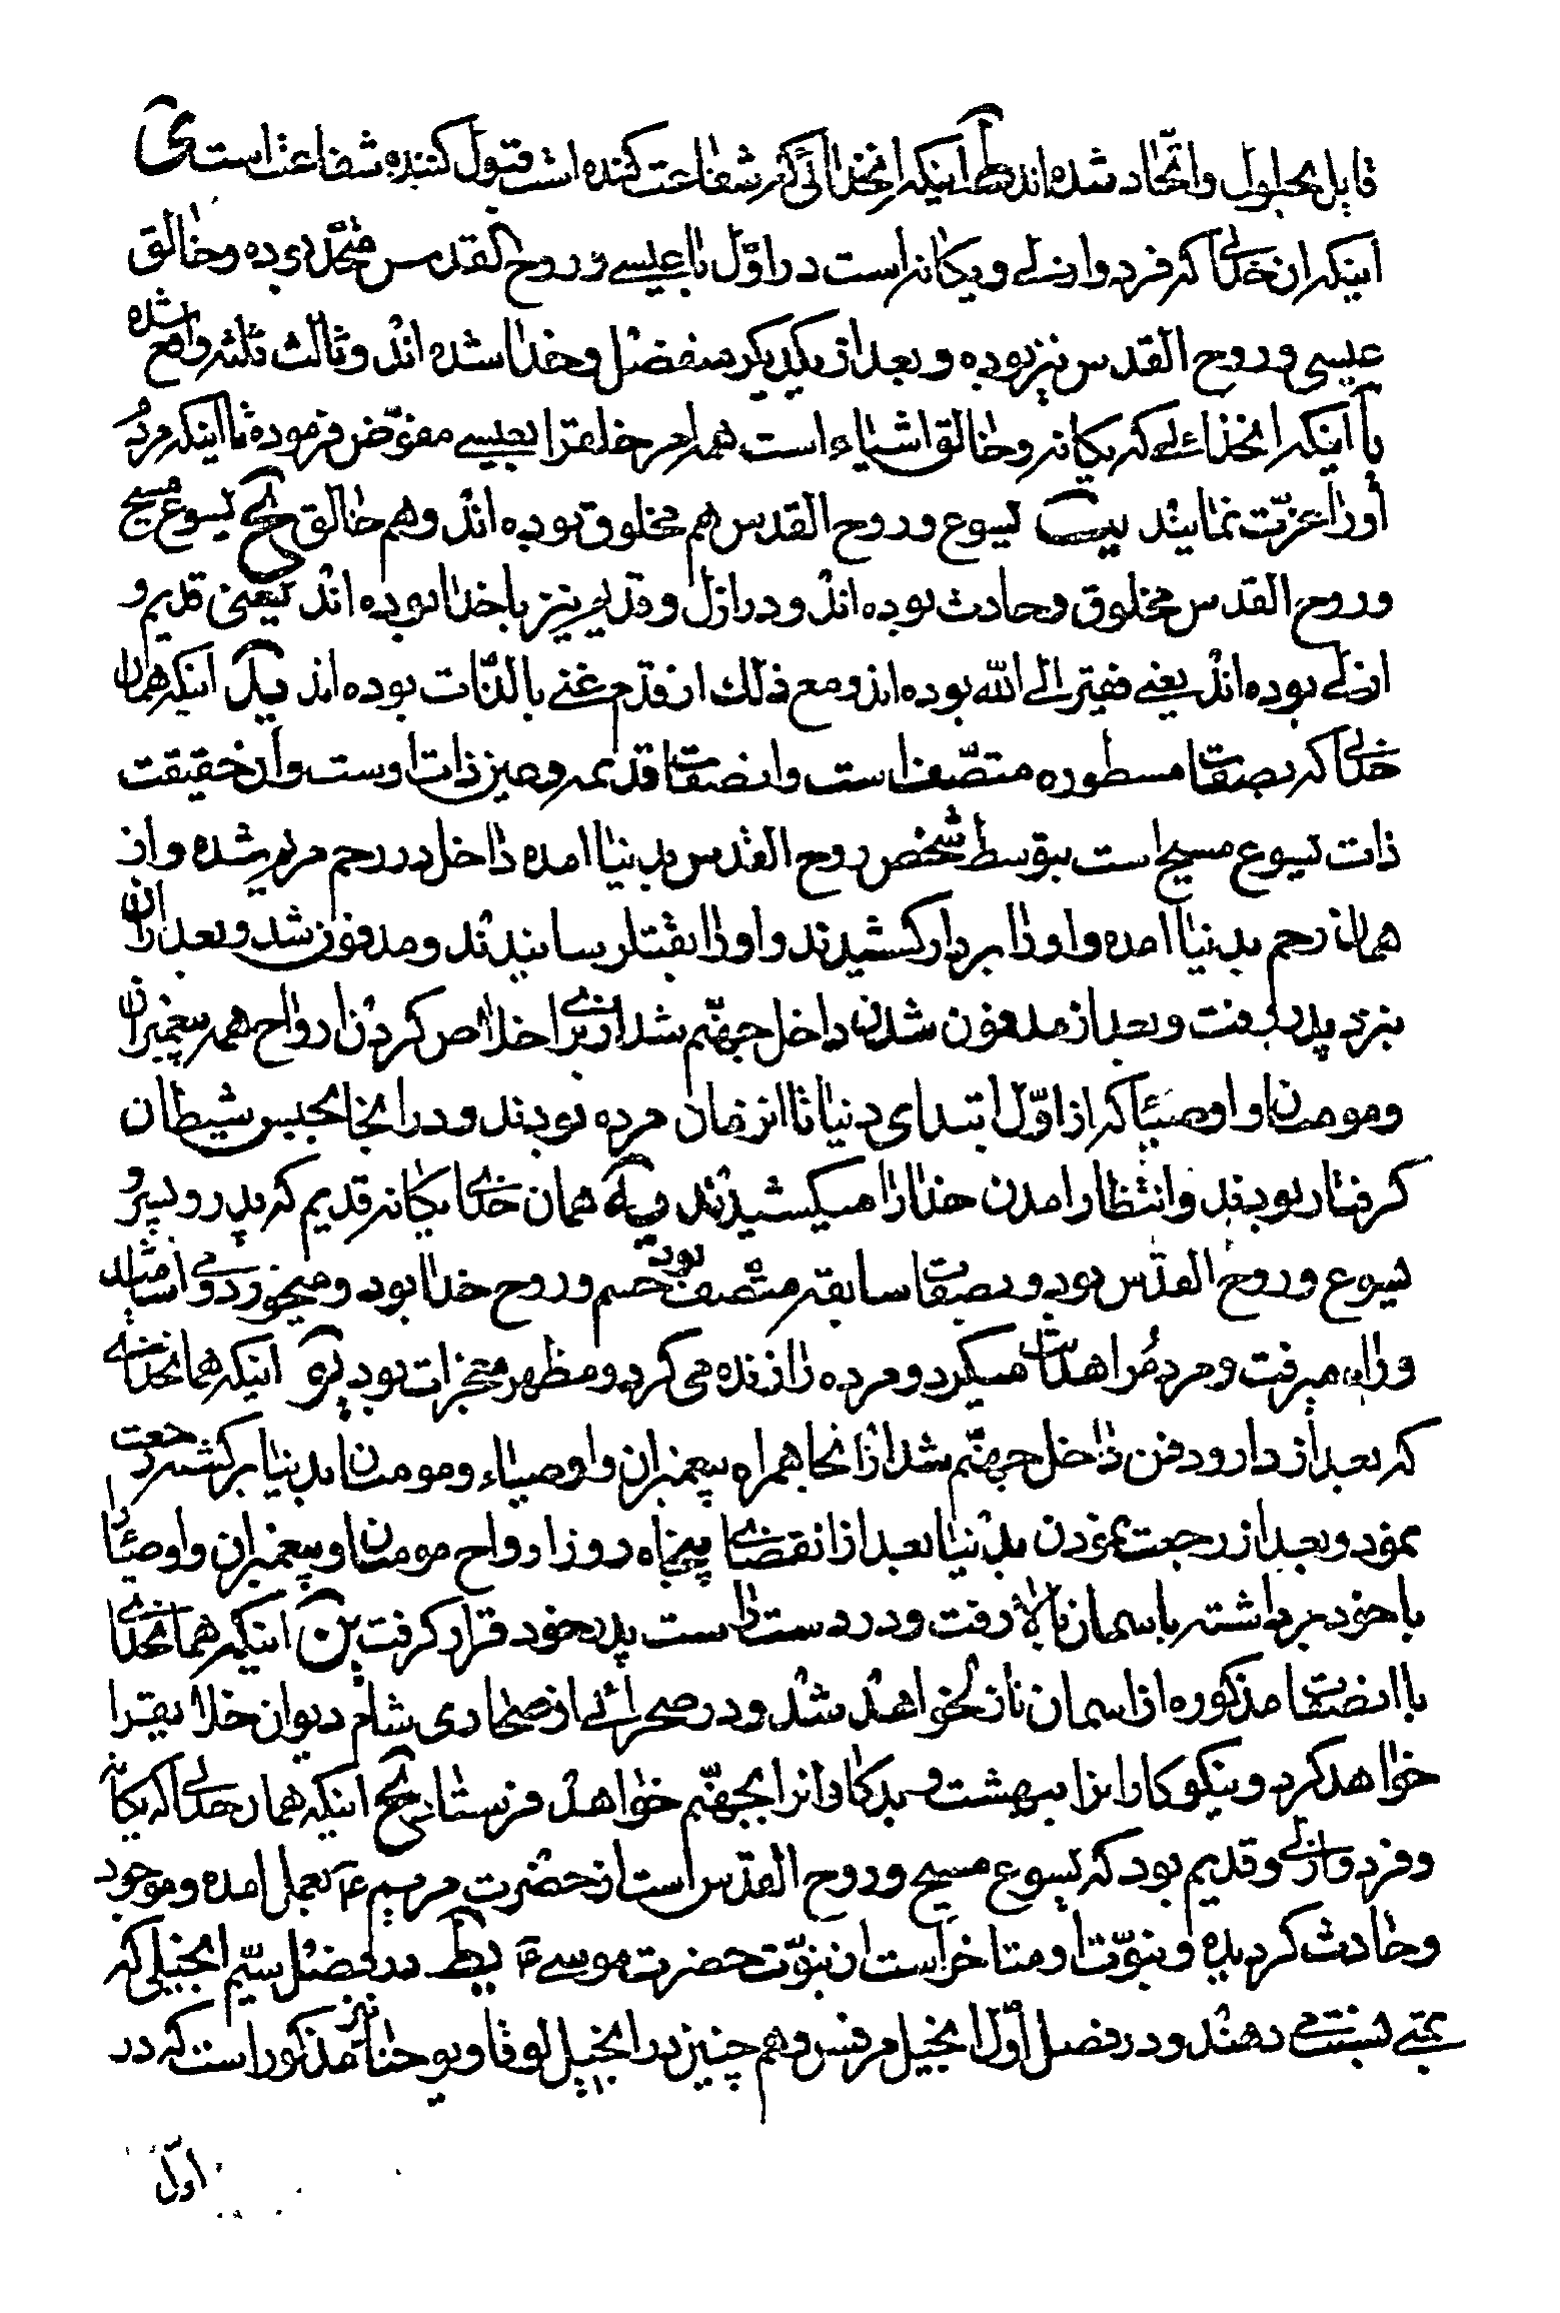 قایل بحلول و اتحاد شده‌اند ط اینکه انخدائی که شفاعت کننده است قبول کننده شفاعت است ی
اینکه ان خدائی که فرد و ازلی و یکانه است در اول با عیسی و روح القدس متحد بوده و خالق
عیسی و روح القدس نیز بوده و بعد از یکدیگر منفصل و خدا شده اند و ثالث ثلثه واقع شده
یا اینکه انخدائی که یکانه و خالق اشیاء است همه امر خلقرا بعیسی مفوض فرموده تا اینکه مردم
اورا عزت نمایند یب یسوع و روح القدس هم مخلوق بوده اند و هم خالق یج یسوع مسیح
و روح القدس مخلوق و حادث بوده اند و در ازل و قدیم نیز با خدا بوده اند یعنی قدیم و
ازلی بوده اند یعنی فقیر الی الله بوده اند و مع ذلک از قدم غنی بالذات بوده اند ید اینکه همان
خدائی که بصفات مسطوره متصف است و انصفات قدیمه و عین ذات اوست و ان حقیقت
ذات یسوع مسیح است بتوسط شخص روح القدس بدنیا امده داخل در رحم مریم شده و از
همان رحم بدنیا امده و اورا بردار کشیدند و اورا بقتل رسانیدند و مدفون شد و بعد از ان
بنزد پدر رفت و بعد از مدفون شدن داخل جهنم شد از برای خلاص کردن ارواح همه پیغمبران
و مومنان و اوصیا که از اول ابتدای دنیا تا انزمان مرده بودند و در انجا بحبس شیطان
کرفتار بودند و انتظار امدن خدا را میکشیدند یه همان خدای یکانه قدیم که پدر و پسر و
یسوع و روح القدس بود و بصفات سابقه متصف بود جسم و روح خدا بود و میخورد و می اشامید
و راه میرفت و مردم را هدایت میکرد و مرده را زنده می کرد و مظهر معجزات بود یو اینکه همانخدائی
که بعد از دار و دفن داخل جهنم شد از انجا همراه پیغمبران و اوصیاء و مومنان بدنیا برکشته رجعت
نمود و بعد از رجعت نمودن بدنیا بعد از انقضای پنجاه روز ارواح مومنان و پیغمبران و اوصیا را
با خود برداشته باسمان بالا رفت و در دست راست پدر خود قرار کرفت یز اینکه همانخدای
با انصفات مذکوره از اسمان نازل خواهد شد و در صحرائی از صحاری شام دیوان خلایقرا
خواهد کرد و نیکوکارانرا ببهشت و بدکارانرا بجهنم خواهد فرستاد یح اینکه همان خدائی که یکانه
و فرد و ازلی و قدیم بود که یسوع مسیح و روح القدس است از حضرت مریم ع بعمل امده و موجود
و حادث کردیده و نبوت او متاخر است از نبوت حضرت موسی ع یط در فصل سیم انجیلی که
بمتی نسبت می دهند و در فصل اول انجیل مرقس و هم چنین در انجیل لوقا و یوحنا نیز مذکور است که در
اول